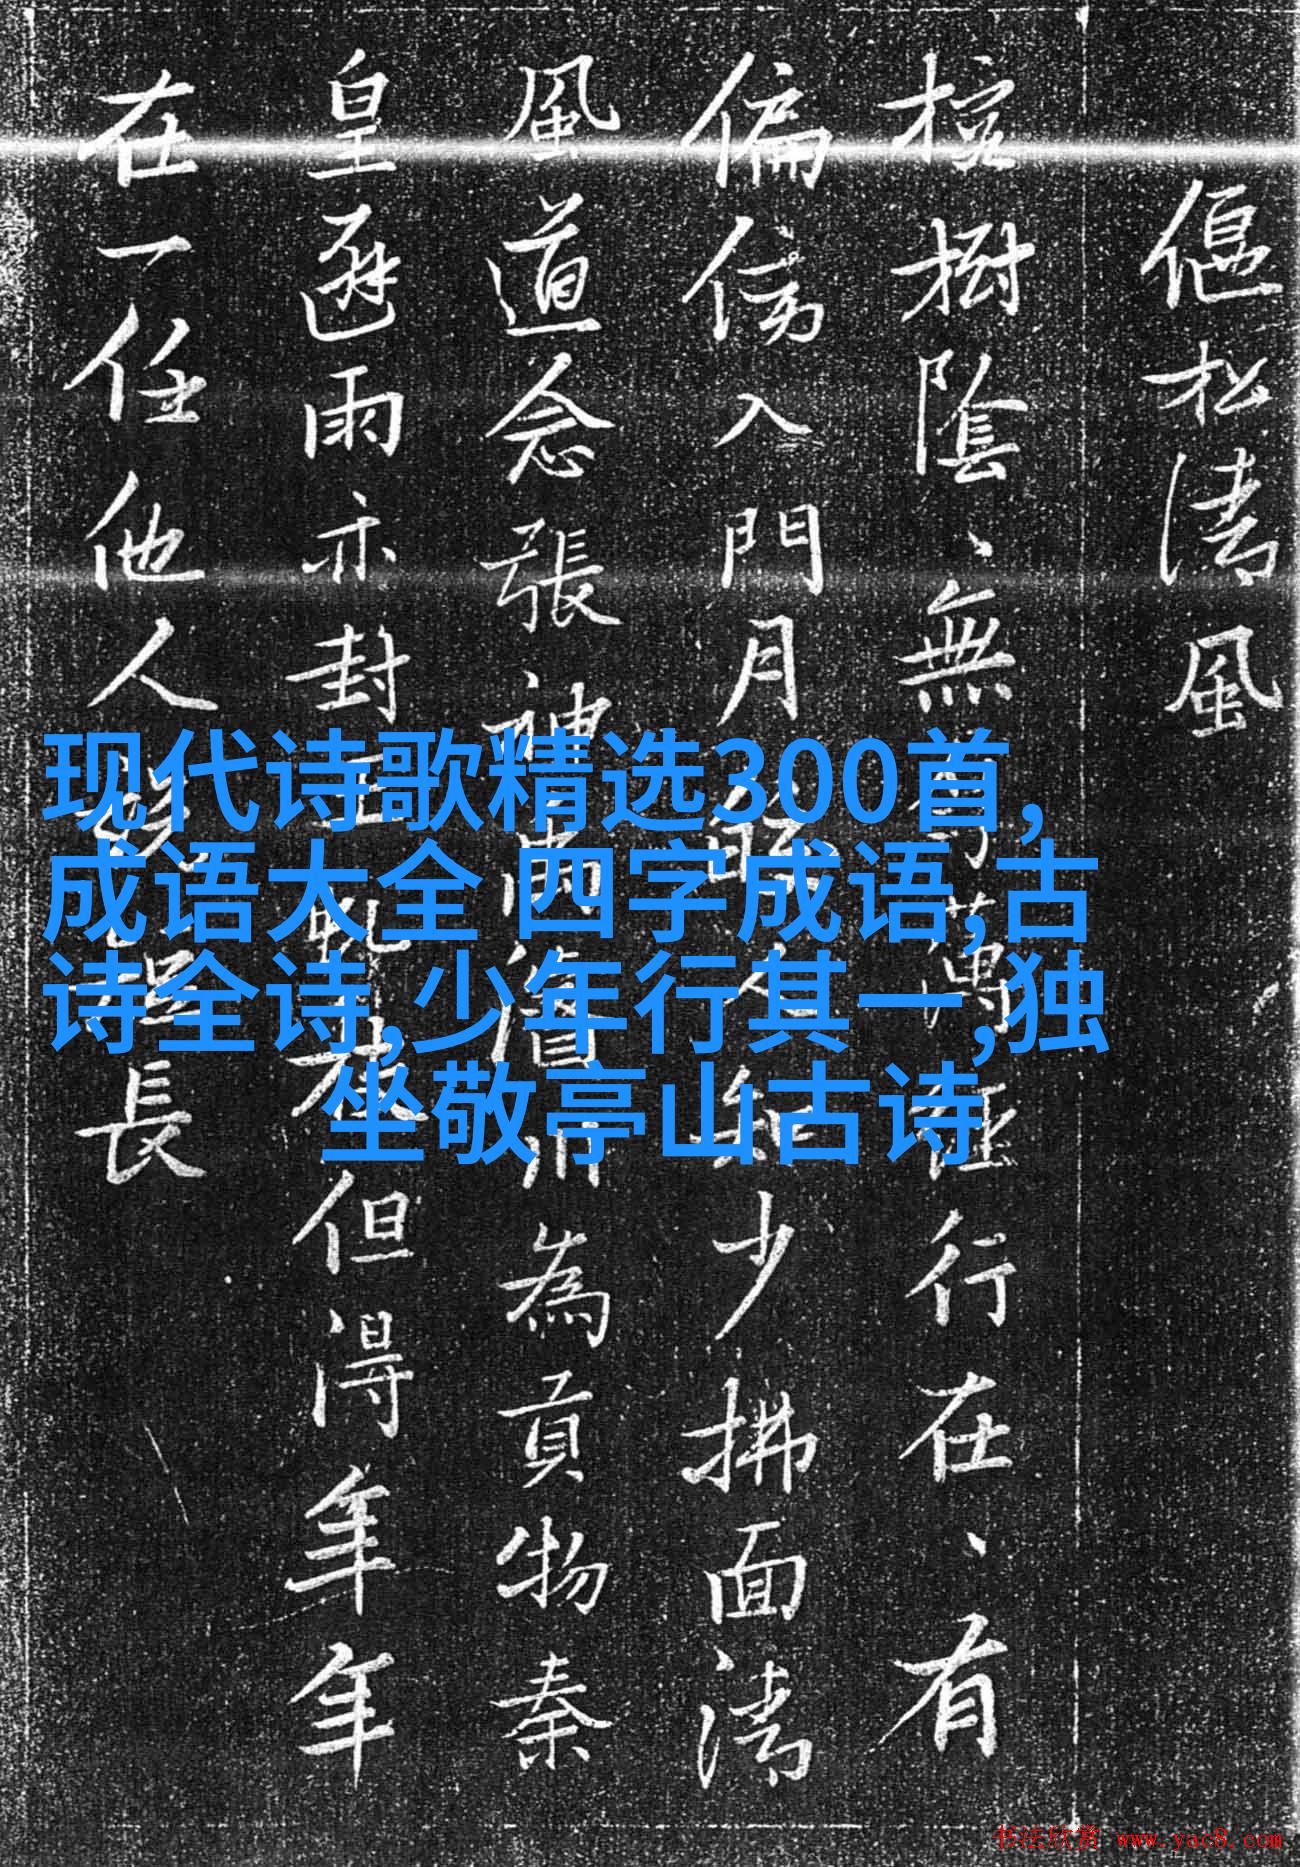 偃松清風
樹陰、無萬行在、有
偏傍入門月少拂面清
風道念張神為貢物秦
皇避雨亦封但得年年
在一任他人長
现代诗歌精选300首,
成语大全 四字成语,古
诗全诗,少年行其一,独
坐敬亭山古诗
书法欣赏 www.yac8.com